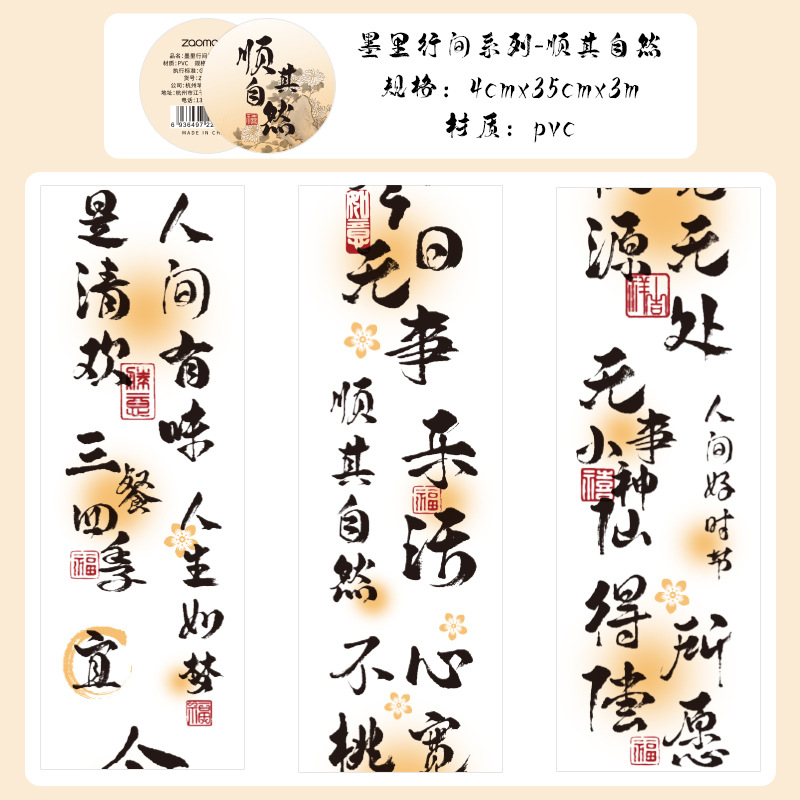 zaomo
品名:墨里行间
材质:PVC 规格
执行标准:
货号:Z
公司:杭州
地址:杭州市江
电话:13
6 936497 22
MADE IN CH
顺其
自然
墨里行间系列-顺其自然
规格:4cmx35cmx3m
材质:pvc
人间有味
是清欢
三餐四季
福
人生如梦
福
宜
今
如意
今日
无事
顺其自然
乐活
福
心宽
不桃
无处
源
吉祥
无事
小神仙
禧
人间好时节
所愿
得偿
福